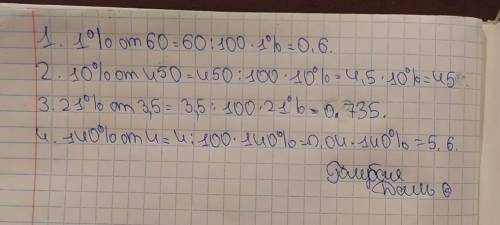 1. 1% от 60 = 60 : 100 · 1% = 0,6.
2. 10% от 450 = 450 : 100 · 10% = 4,5 · 10% = 45
3. 21% от 3,5 = 3,5 : 100 · 21% = 0,735.
4. 140% от 4 = 4 : 100 · 140% = 0,04 · 140% = 5,6.